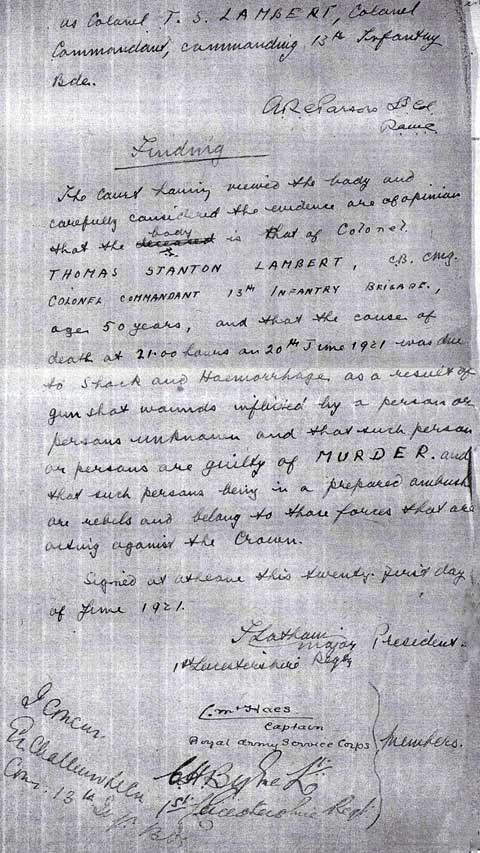 as Colonel T. S. LAMBERT, Colonel
Commandant, commanding 13th Infantry
Bde.
A R C Parsons Lt Col
RAMC
Finding
The Court having viewed the body and
carefully considered the evidence are of opinion
that the deceased body is that of Colonel.
THOMAS STANTON LAMBERT, C.B. CMG.
COLONEL COMMANDANT 13th INFANTRY BRIGADE.,
age 50 years, and that the cause of
death at 21.00 hours on 20th June 1921 was due
to Shock and Haemorrhage as a result of
gun shot wounds inflicted by a person or
persons unknown and that such person
or persons are guilty of MURDER. and
that such persons being in a prepared ambush
are rebels and belong to those forces that are
acting against the Crown.
Signed at Athlone this twenty-first day
of June 1921.
T Latham Major President.
1st Leicestershire Regt
C. M. Haes
Captain
Royal Army Service Corps
Members.
C H Byrne Lt
1st Leicestershire Regt
I Concur
Comr. 13th Inf. Bde